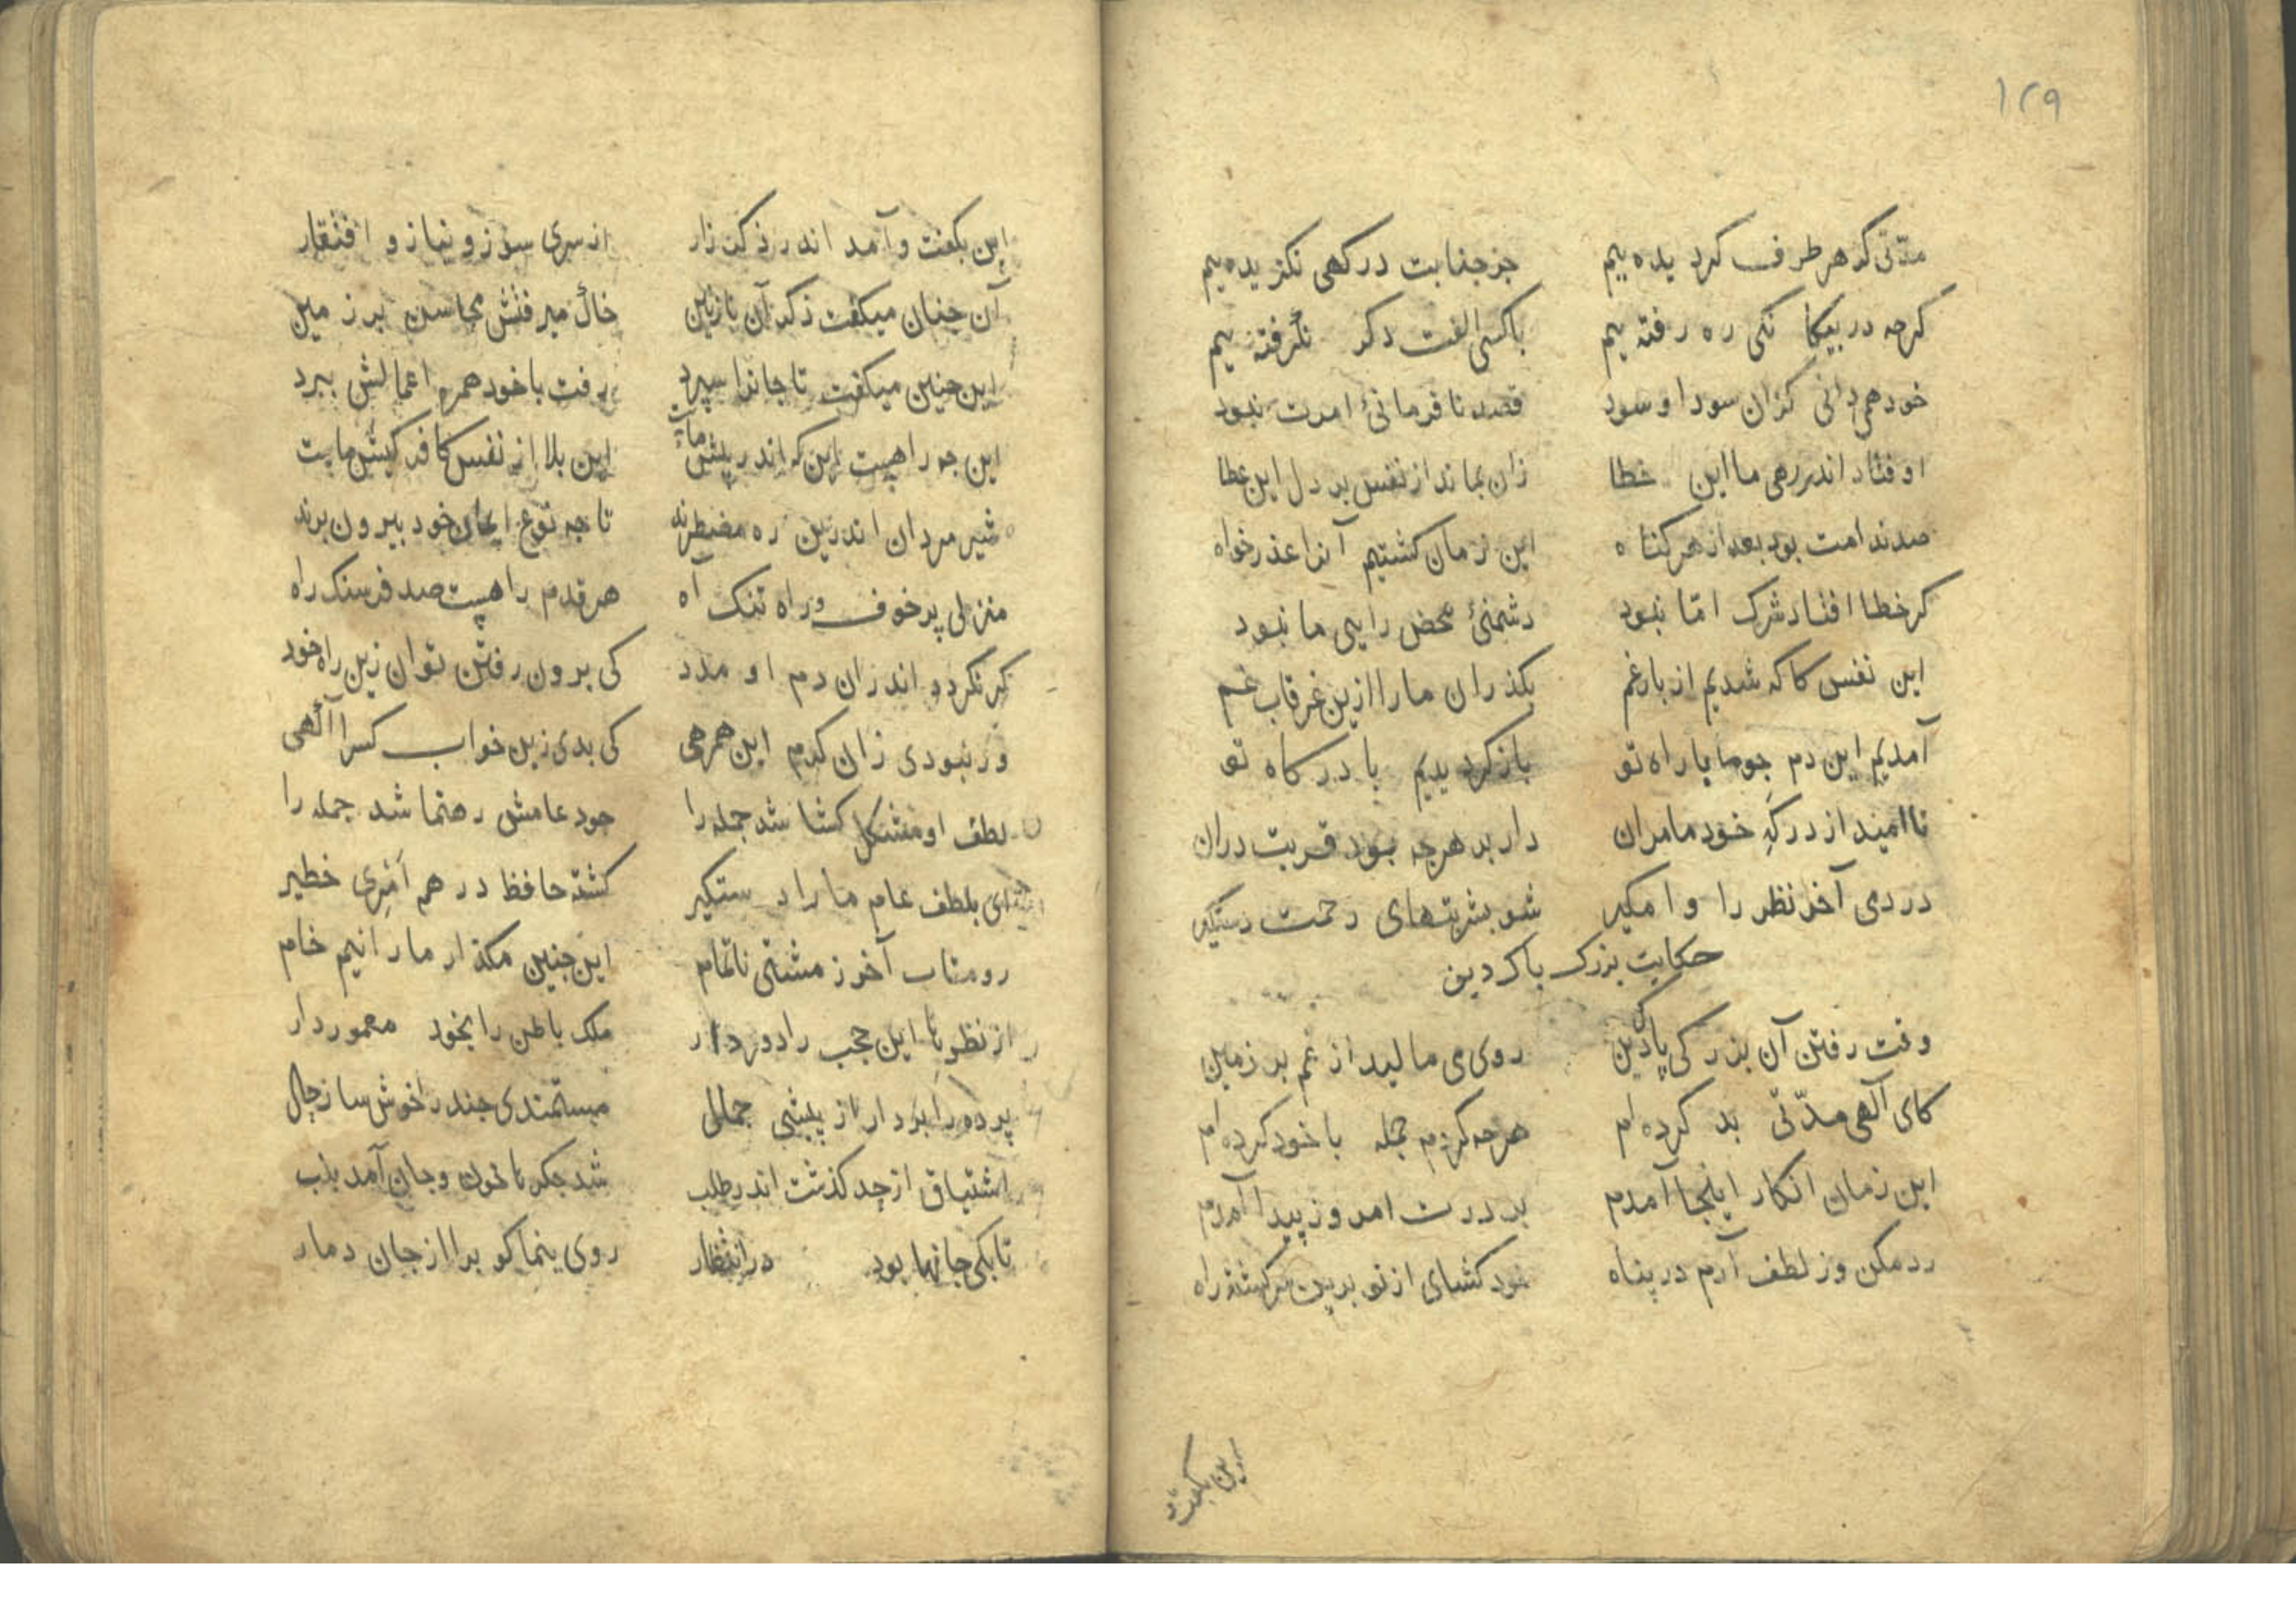 ١٢٩
مدّتی کر هر طرف کرد یده ییم جز جنابت درکهی نکز یده ییم
کرچه در بیکا نکی ره رفته ییم باکسی الفت دکر نگرفته ییم
خود همی دانی کزان سودا و سود قصد نا فرمانئ امرت نبود
او فتاد اندر رهی ما این خطا زان بماند از نفس بر دل این عطا
صد ندامت بود بعد از هر کناه این زمان کشتیم آنرا عذر خواه
کر خطا افتاد شرک امّا نبود دشمنئ محض رایی ما نبود
این نفس کاکه شدیم از بار غم بکذران مارا ازین غرقاب غم
آمدیم این دم جوما با راه تو باز کردیدیم با درکاه تو
نا امید از درکهِ خود مامران دار بر هرچه بود قربت دران
در دمی آخر نظر را وا مکیر شو بشربتهای رحمت دستکیر
حکایت بزرک باک دین
وقت رفتن آن بزرکی پاک دین روی می مالید از غم بر زمین
کای آلهی مدّتی بد کرده ام هرچه کردم جمله با خود کرده ام
این زمان انکار اینجا آمدم بر درت امروز پیدا آمدم
رد مکن وز لطف آرم در پناه خود کشای از تو برین سرکشته راه
این بکفت
این بکفت و آمد اندر ذکر زار از سری سوز و نیاز و افتقار
آن چنان میکفت ذکر آن نازنین خاک میرفتش محاسن بر زمین
این چنین میکفت تا جانرا سپرد رفت با خود همره اعمالش ببرد
این چه راهیست این که اندر پیش ماست این بلا از نفس کافر کیش ماست
شیر مردان اندرین ره مضطرند تا چه نوع ایمان خود بیرون برند
منزلی پر خوف و راه تنک آه هر قدم راهیست صد فرسنک راه
کر نکردد اندران دم او مدد کی برون رفتن توان زین راه خود
ور نبودی زان کرم این همرهی کی بدی زین خواب کسرا آگهی
لطف او مشکل کشا شد جمله را جود عامش رهنما شد جمله را
ای بلطف عام ما را دستکیر کشته حافظ در هم اَمْرِی خطیر
رو متاب آخر ز مشتی ناتمام این چنین مکذار مارا نیم خام
از نظر ما این حجب را دور دار ملک باطن را بخود معمور دار
پرده را بردار از پیشی جمال مستمندی چند را خوش ساز حال
اشتیاق از حد کذشت اندر طلب شد جکر ما خون و جان آمد بلب
تا بکی جانها بود در انتظار روی بنما کو برا از جان دمار